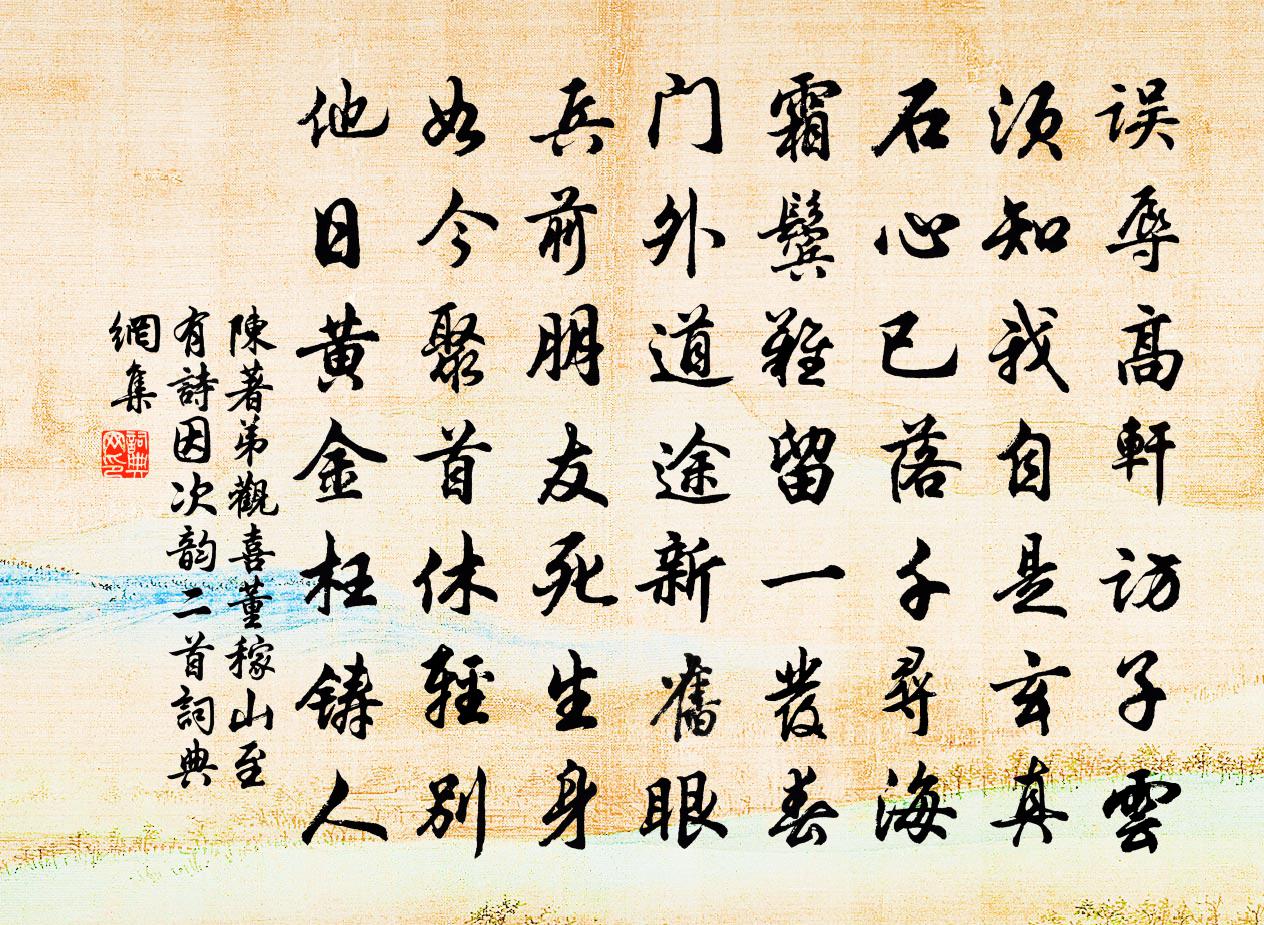 误辱高軒訪子雲
须知我自是玄真
石心已落千尋海
霜鬓難留一發春
门外道途新舊眼
兵前朋友死生身
如今聚首休輕别
他日黄金枉铸人
陳著弟觀喜董稼山至
有詩因次韵二首詞典
網集
詞典網印